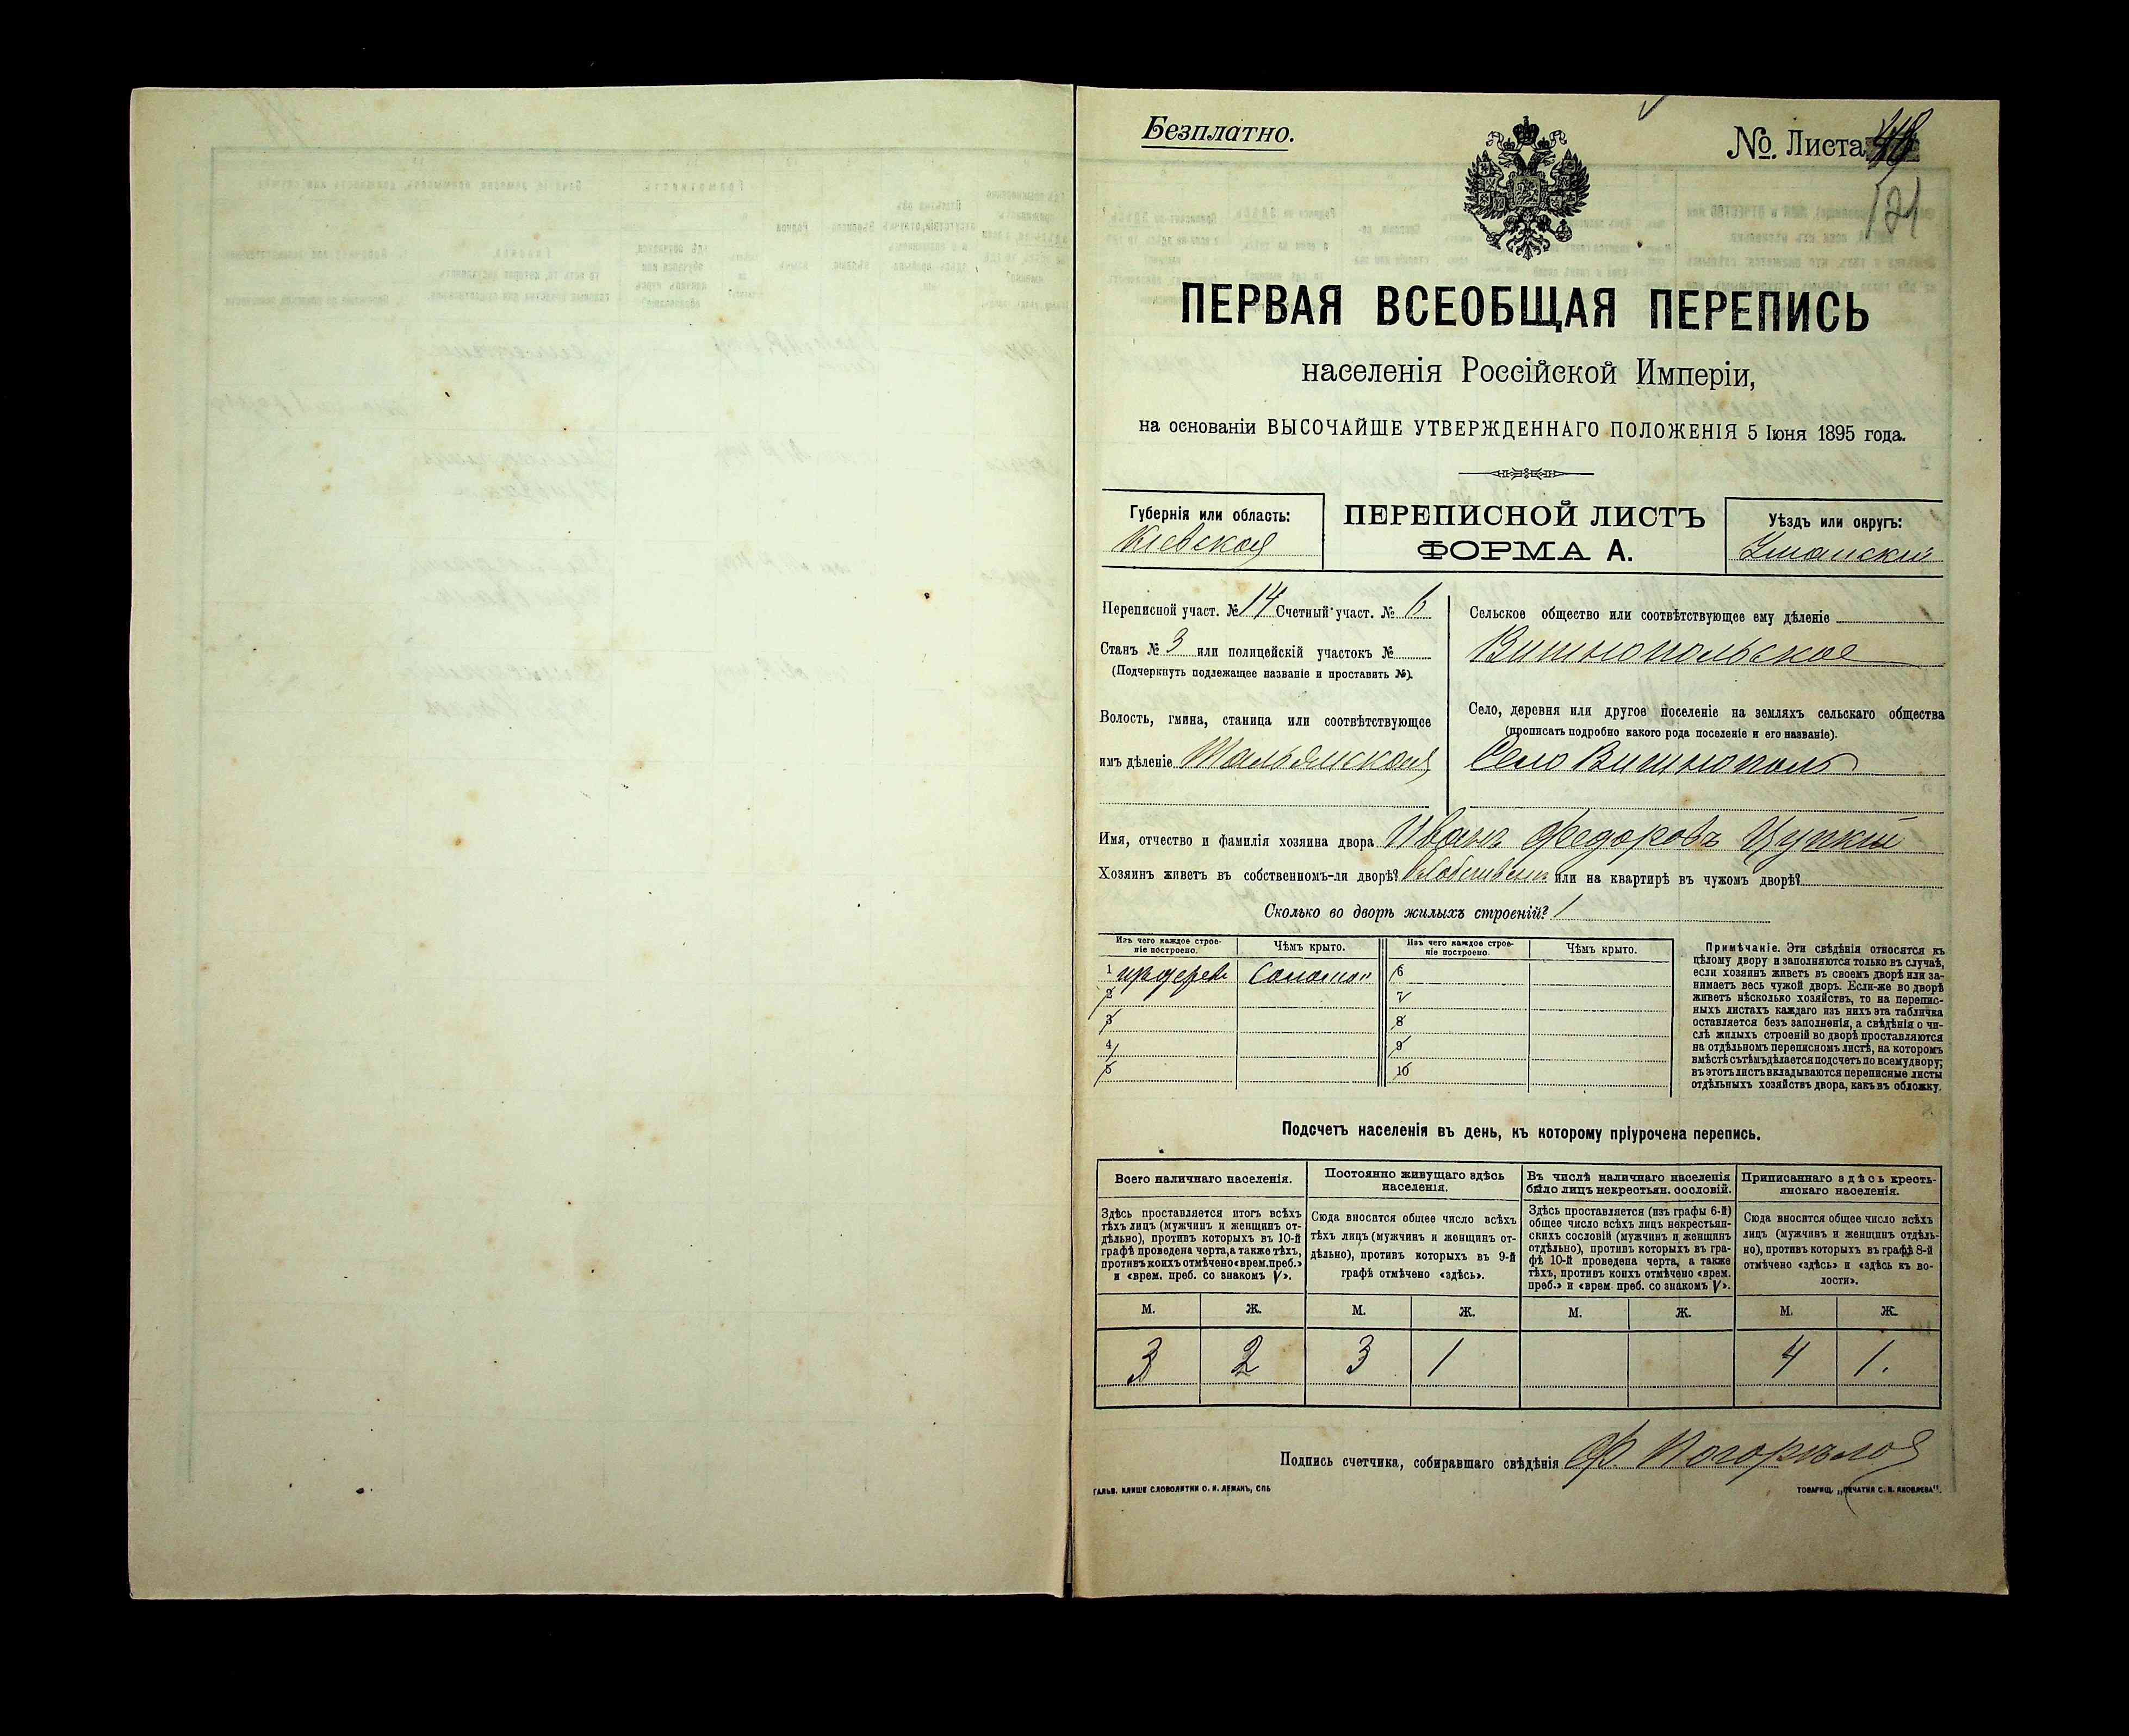 Безплатно.
№. Листа
121
ПЕРВАЯ ВСЕОБЩАЯ ПЕРЕПИСЬ
населенія Россійской Имперіи,
на основаніи ВЫСОЧАЙШЕ УТВЕРЖДЕННАГО ПОЛОЖЕНІЯ 5 Іюня 1895 года.
Губернія или область:
Кіевская
ПЕРЕПИСНОЙ ЛИСТЪ
ФОРМА А.
Уѣздъ или округъ:
Уманскій
Переписной участ. № 14 Счетный участ. № 6
Станъ № 3 или полицейскій участокъ №
(Подчеркнуть подлежащее названіе и проставить №).
Волость, гмина, станица или соотвѣтствующее
имъ дѣленіе Тальянская
Сельское общество или соотвѣтствующее ему дѣленіе
Вишнопольское
Село, деревня или другое поселеніе на земляхъ сельскаго общества
(прописать подробно какого рода поселеніе и его названіе).
Село Вишнополь
Имя, отчество и фамилія хозяина двора Иванъ Федоровъ Цуркій
Хозяинъ живетъ въ собственномъ-ли дворѣ? или на квартирѣ въ чужомъ дворѣ?
Сколько во дворѣ жилыхъ строеній? 1
Изъ чего каждое строе-
ніе построено.
Чѣмъ крыто.
Изъ чего каждое строе-
ніе построено.
Чѣмъ крыто.
1 издерев Соломой 6
2 7
3 8
4 9
5 10
Примѣчаніе. Эти свѣдѣнія относятся къ
цѣлому двору и заполняются только въ случаѣ,
если хозяинъ живетъ въ своемъ дворѣ или за-
нимаетъ весь чужой дворъ. Если-же во дворѣ
живетъ нѣсколько хозяйствъ, то на перепис-
ныхъ листахъ каждаго изъ нихъ эта табличка
оставляется безъ заполненія, а свѣдѣнія о чи-
слѣ жилыхъ строеній во дворѣ проставляются
на отдѣльномъ переписномъ листѣ, на которомъ
вмѣстѣ съ тѣмъ дѣлается подсчетъ по всему двору;
въ этотъ листъ вкладываются переписные листы
отдѣльныхъ хозяйствъ двора, какъ въ обложку.
Подсчетъ населенія въ день, къ которому пріурочена перепись.
Всего наличнаго населенія.
Здѣсь проставляется итогъ всѣхъ
тѣхъ лицъ (мужчинъ и женщинъ от-
дѣльно), противъ которыхъ въ 10-й
графѣ проведена черта, а также тѣхъ,
противъ коихъ отмѣчено «врем. преб.»
и «врем. преб. со знакомъ V».
Постоянно живущаго здѣсь
населенія.
Сюда вносится общее число всѣхъ
тѣхъ лицъ (мужчинъ и женщинъ от-
дѣльно), противъ которыхъ въ 9-й
графѣ отмѣчено «здѣсь».
Въ числѣ наличнаго населенія
было лицъ некрестьян. сословій.
Здѣсь проставляется (изъ графы 6-й)
общее число всѣхъ лицъ некрестьян-
скихъ сословій (мужчинъ и женщинъ
отдѣльно), противъ которыхъ въ гра-
фѣ 10-й проведена черта, а также
тѣхъ, противъ коихъ отмѣчено «врем.
преб.» и «врем. преб. со знакомъ V».
Приписаннаго здѣсь кресть-
янскаго населенія.
Сюда вносится общее число всѣхъ
лицъ (мужчинъ и женщинъ отдѣль-
но), противъ которыхъ въ графѣ 8-й
отмѣчено «здѣсь» и «здѣсь къ во-
лости».
М. Ж. М. Ж. М. Ж. М. Ж.
3 2 3 1 4 1.
Подпись счетчика, собиравшаго свѣдѣнія Ф.
ГАЛЬВ. КЛИШЕ СЛОВОЛИТНИ О. И. ЛЕМАНЪ, СПБ
ТОВАРИЩ. „ПЕЧАТНЯ С. П. ЯКОВЛЕВА".